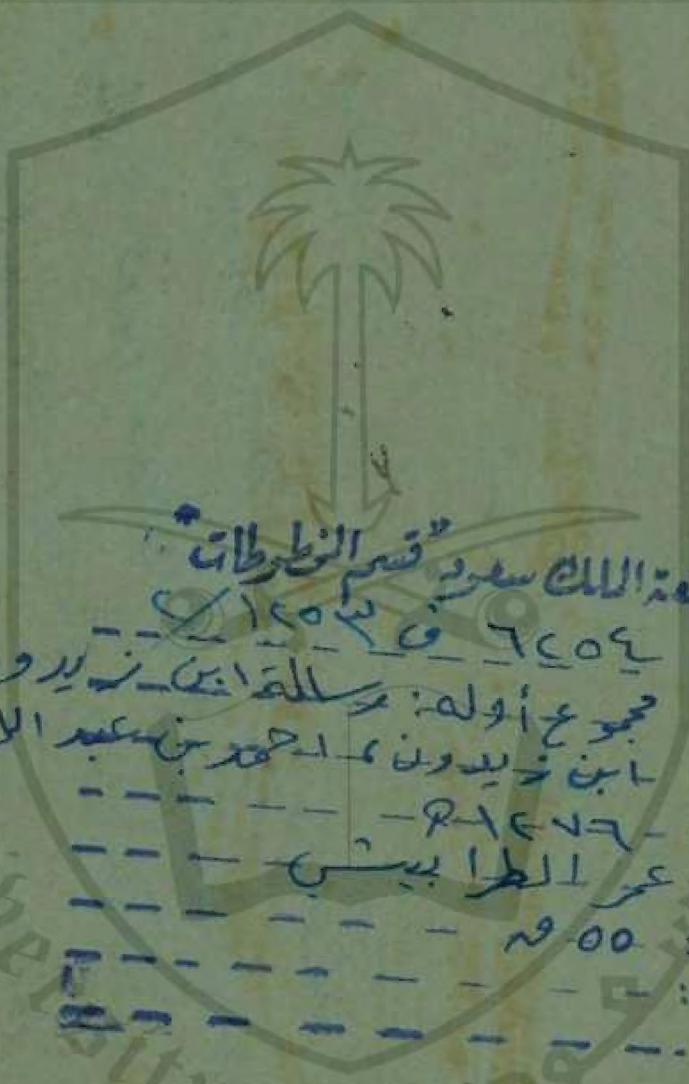 الملك سعود "قسم المخطوطات"
٦٢٥٤ ف ١٢٥٣/٢
مجموع أوله: رسالة ابن زيدو
ابن زيدون، احمد بن عبد الل
١٢٧٦ هـ
عمر الطرابيشي
٥٥ ق